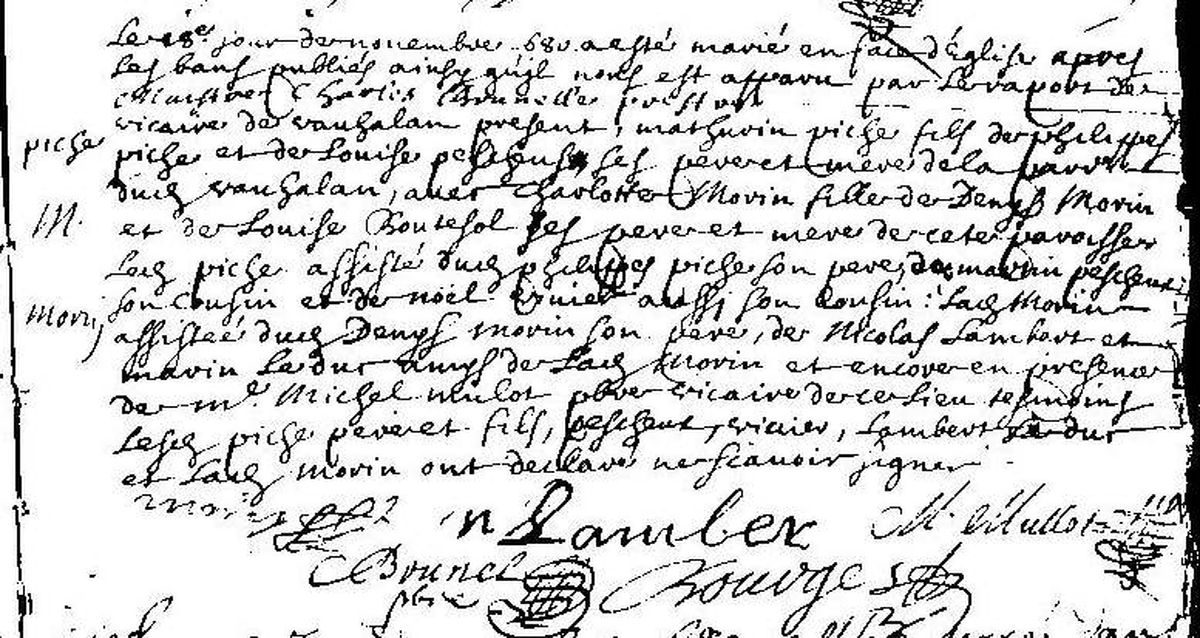 Le 18e jour de novembre 680 a esté marié en face d'Église apres
Les bans publiés ainsy quil nous est apparu par Le raport de
Maistre Charles Brunelle prestre
vicaire de vauhalan present, mathurin piche fils de philippes
piche
piche et de Louise ses pere et mere de la parr
dud vauhalan, avec Charlotte Morin fille de Denys Morin
M.
et de Louise Boutesol ses pere et mere de cete paroisse
Led piche assisté dud philippes piche son pere, de martin pescheut
son Cousin et de noël aussi son Cousin : Lad Morin
Morin
assistée dud Denys morin son pere, de Nicolas Lambert et
marin Le duc amys de Lad Morin et encore en presence
de Me Michel mulot pbre vicaire de ce Lieu tesmoins
Lesd piche pere et fils, pescheut, Lambert Le duc
et Lad morin ont declaré ne scavoir signer
n Lamber M. Mullot
C Brunel Rouvge
pbre